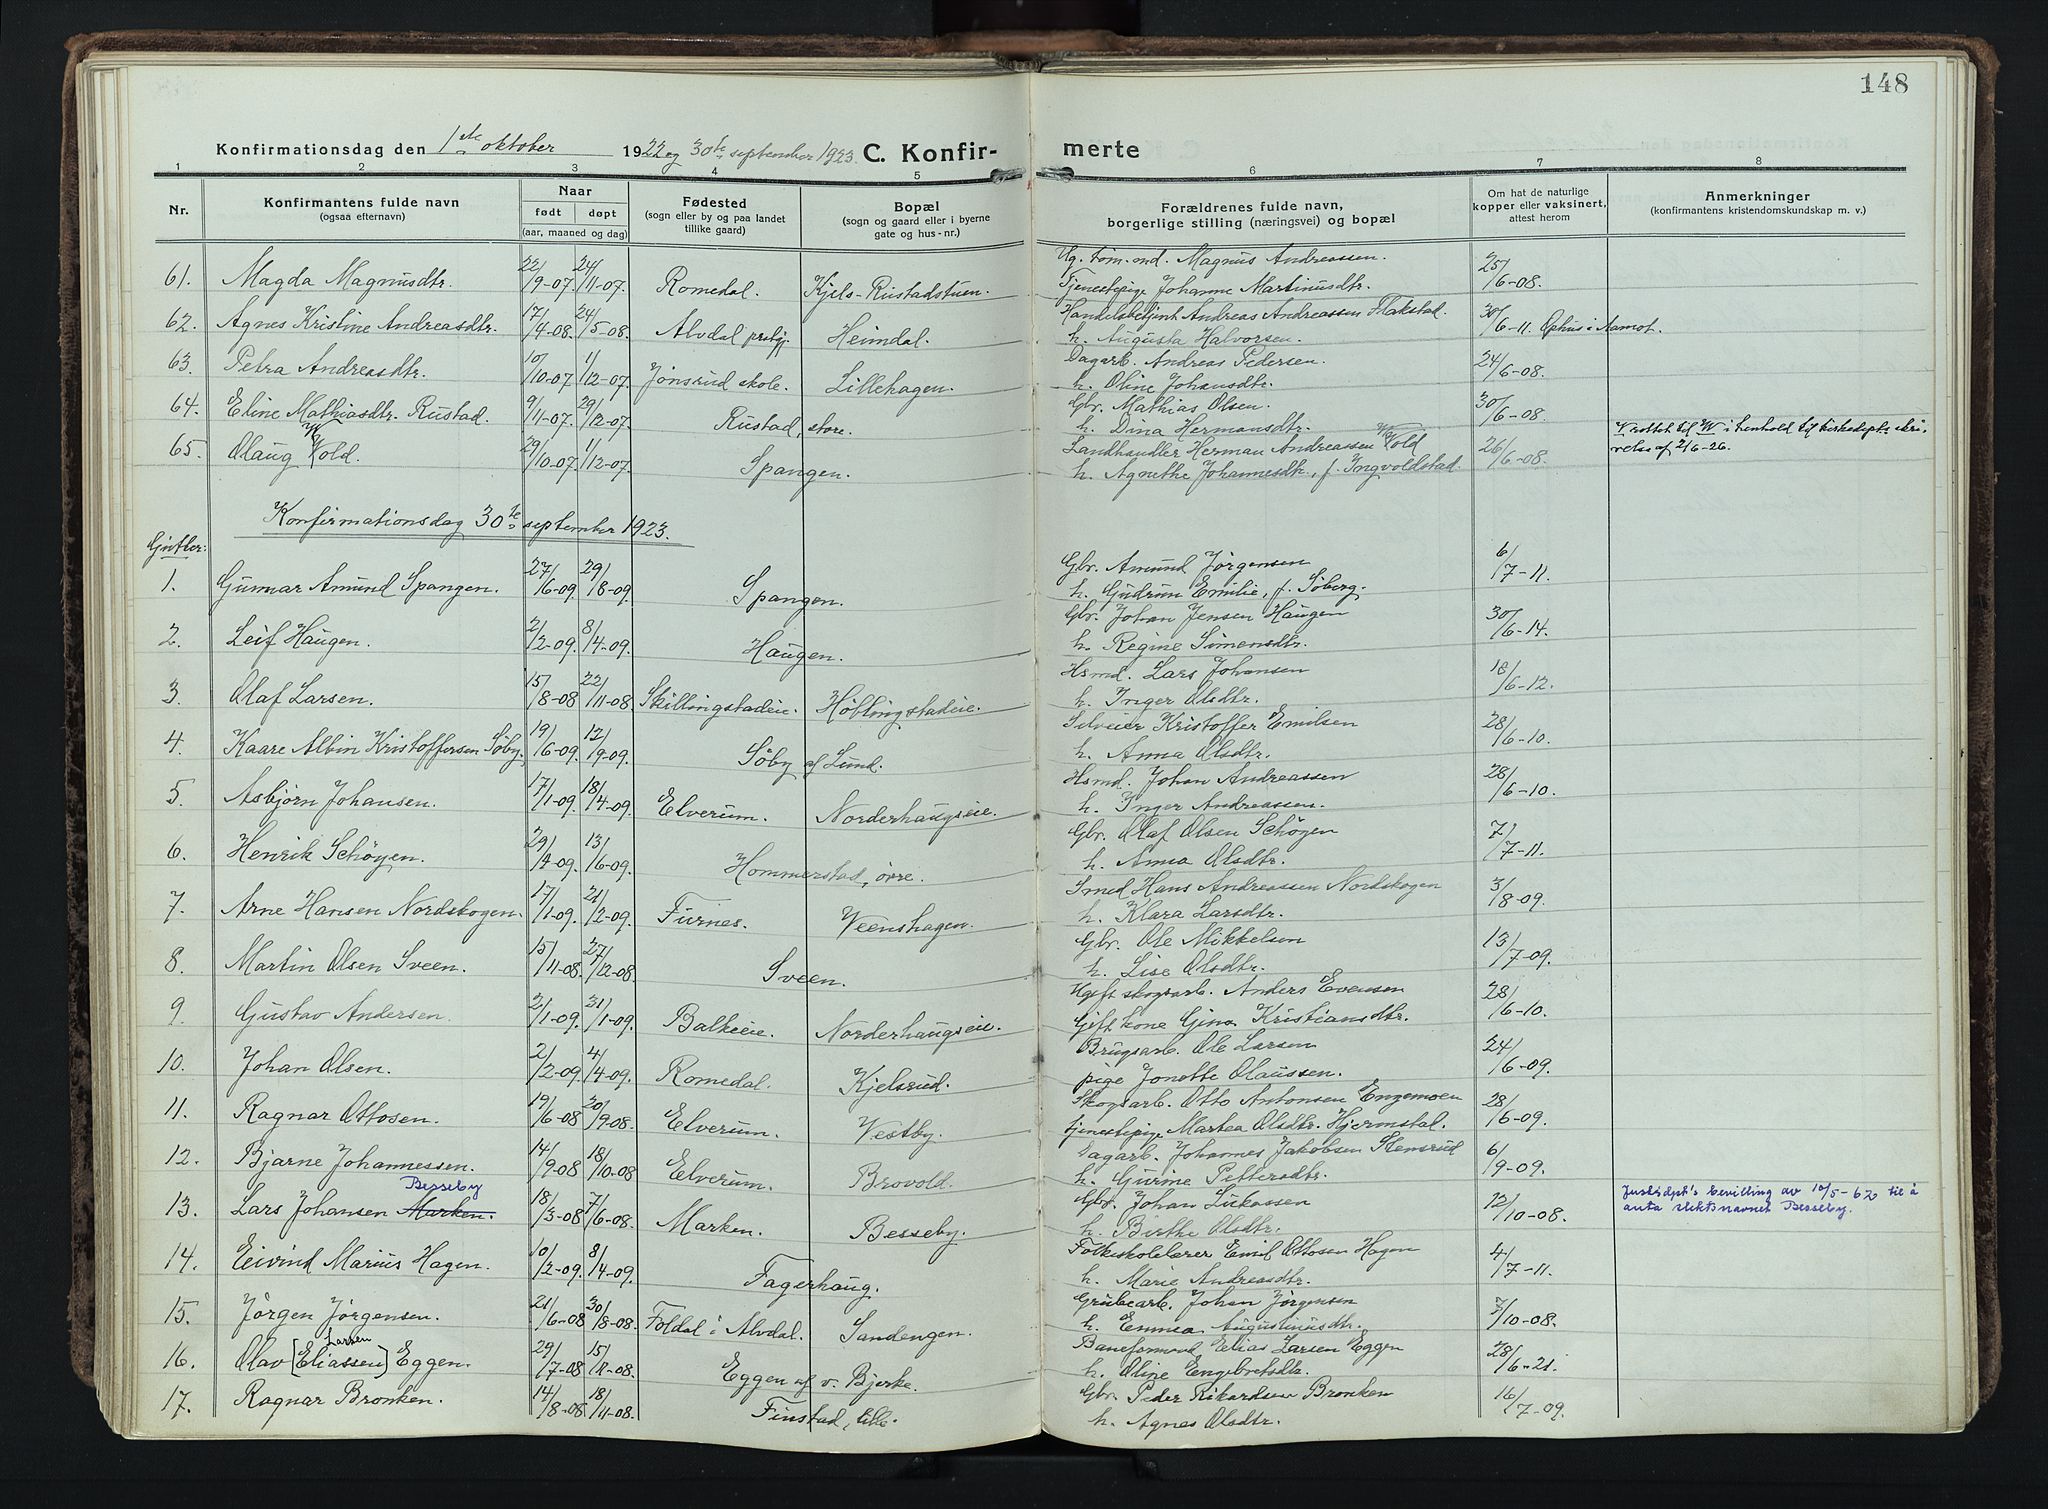 148
Konfirmationsdag den 1ste oktober 1922 og 30te september 1923. C. Konfir- merte
1 2 3 4 5 6 7 8
Nr. Konfirmantens fulde navn (ogsaa efternavn) Naar født døpt (aar, maaned og dag) Fødested (sogn eller by og paa landet tillike gaard) Bopæl (sogn og gaard eller i byerne gate og hus-nr.) Forældrenes fulde navn, borgerlige stilling (næringsvei) og bopæl Om hat de naturlige kopper eller vaksinert, attest herom Anmerkninger (konfirmantens kristendomskundskap m. v.)
61. Magda Magnusdtr. 22/9-07. 24/11-07. Romedal. Kjels-Rustadstuen. Ug. tøm.md. Magnus Andreassen. 25/6-08.
Tjenestepige Johanne Martinusdtr.
62. Agnes Kristine Andreasdtr. 17/4-08. 24/5-08. Alvdal prstgj. Heimdal. Handelsbetjent Andreas Andreassen Flakstad. 30/6-11. Ophus i Aamot.
h. Augusta Halvorsen.
63. Petra Andreasdtr. 10/10-07. 1/12-07. Jønsrud skole. Lillehagen. Dagarb. Andreas Pedersen. 24/6-08.
h. Oline Johansdtr.
64. Eline Mathiasdtr. Rustad. 9/11-07. 29/12-07. Rustad, store. Gbr. Mathias Olsen. 30/6-08.
h. Dina Hermansdtr.
65. Olaug Wold. 29/10-07. 1/12-07. Spangen. Landhandler Herman Andreassen Wold 26/6-08. V rettet til W i henhold til kirkedept.s skri-
h. Agnethe Johannesdtr., f. Ingvoldstad. velse af 2/6-26.
Konfirmationsdag 30te september 1923.
Gutter:
1. Gunnar Amund Spangen. 27/6-09. 29/8-09. Spangen. Gbr. Amund Jørgensen 6/7-11.
h. Gudrun Emilie, f. Søberg.
2. Leif Haugen. 2/2-09. 8/4-09. Haugen. Gbr. Johan Jensen Haugen 30/6-14.
h. Regine Simensdtr.
3. Olaf Larsen. 15/8-08 22/11-08. Skillingstadeie. Høblingstadeie. Hsmd. Lars Johansen 18/6-12.
h. Inger Olsdtr.
4. Kaare Albin Kristoffersen Søby. 19/6-09. 12/9-09. Søby af Lund. Selveier Kristoffer Emilsen 28/6-10.
h. Anna Olsdtr.
5. Asbjørn Johansen. 17/1-09. 18/4-09. Elverum. Norderhaugseie. Hsmd. Johan Andreassen 28/6-10.
h. Inger Andreassen.
6. Henrik Schøyen. 29/4-09. 13/6-09. Hommerstad, øvre. Gbr. Olaf Olsen Schøyen 7/7-11.
h. Anna Olsdtr.
7. Arne Hansen Nordskogen. 17/1-09. 21/2-09. Furnes. Veenshagen. Smed Hans Andreassen Nordskogen 3/8-09.
h. Klara Larsdtr.
8. Martin Olsen Sveen. 15/11-08. 27/12-08. Sveen. Gbr. Ole Mikkelsen 13/7-09.
h. Lise Olsdtr.
9. Gustav Andersen. 2/1-09. 31/1-09. Balkeie. Norderhaugseie. Ugift skogsarb. Anders Evensen 28/6-10.
Gift kone Gina Kristiansdtr.
10. Johan Olsen. 2/2-09. 4/4-09. Romedal. Kjelsrud. Brugsarb. Ole Larsen 24/6-09.
pige Jonette Olaussen.
11. Ragnar Ottosen. 19/6-08. 20/9-08. Elverum. Vestby. Skogsarb. Otto Antonsen Engemoen 28/6-09.
tjenestepige Martea Olsdtr. Hjermstal.
12. Bjarne Johannessen. 14/9-08 18/10-08 Elverum. Brovold. Dagarb. Johannes Jakobsen Stensrud 6/9-09.
h. Gurine Pettersdtr.
Besseby
13. Lars Johansen Marken. 18/3-08. 7/6-08. Marken. Besseby. Gbr. Johan Lukassen 12/10-08. Justisdpt's bevilling av 10/5-62 til å
h. Birthe Olsdtr. anta slektsnavnet Besseby.
14. Eivind Marius Hagen. 10/2-09. 8/4-09. Fagerhaug. Folkeskolelærer Emil Ottosen Hagen 4/7-11.
h. Marie Andreasdtr.
15. Jørgen Jørgensen. 21/6-08. 30/8-08. Foldal i Alvdal. Sandengen. Grubearb. Johan Jørgensen 7/10-08.
h. Emma Augustinusdtr.
Larsen
16. Olav [Eliassen] Eggen. 29/7-08. 15/11-08. Eggen af v. Bjerke. Baneformand Elias Larsen Eggen 28/6-21.
h. Oline Engebretsdtr.
17. Ragnar Bronken. 14/8-08. 18/11-08. Finstad, lille. Gbr. Peder Rikardsen Bronken 16/7-09.
h. Agnes Olsdtr.